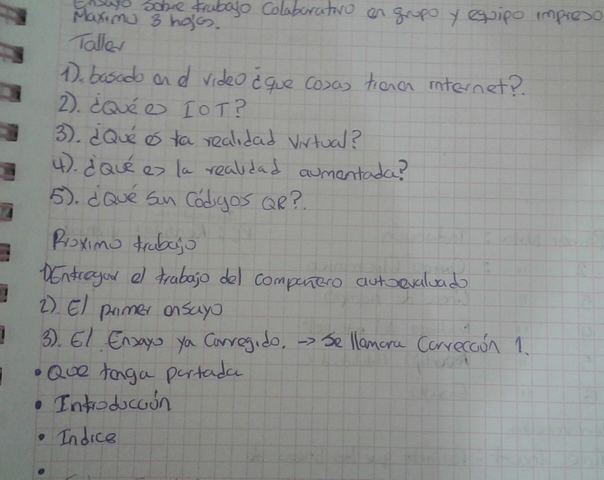 Ensayo sobre trabajo Colaborativo en grupo y equipo impreso
Maximo 3 hojas.
Taller
1). basado en el video ¿que cosas tienen internet?.
2). ¿Qué es IOT?
3). ¿Qué es la realidad virtual?
4). ¿Qué es la realidad aumentada?
5). ¿Qué son Códigos QR?.
Proximo trabajo
1) Entregar el trabajo del compañero autoevaluado
2). El primer ensayo
3). El Ensayo ya Corregido. → Se llamara Corrección 1.
• Que tenga portada
• Introducción
• Indice
•